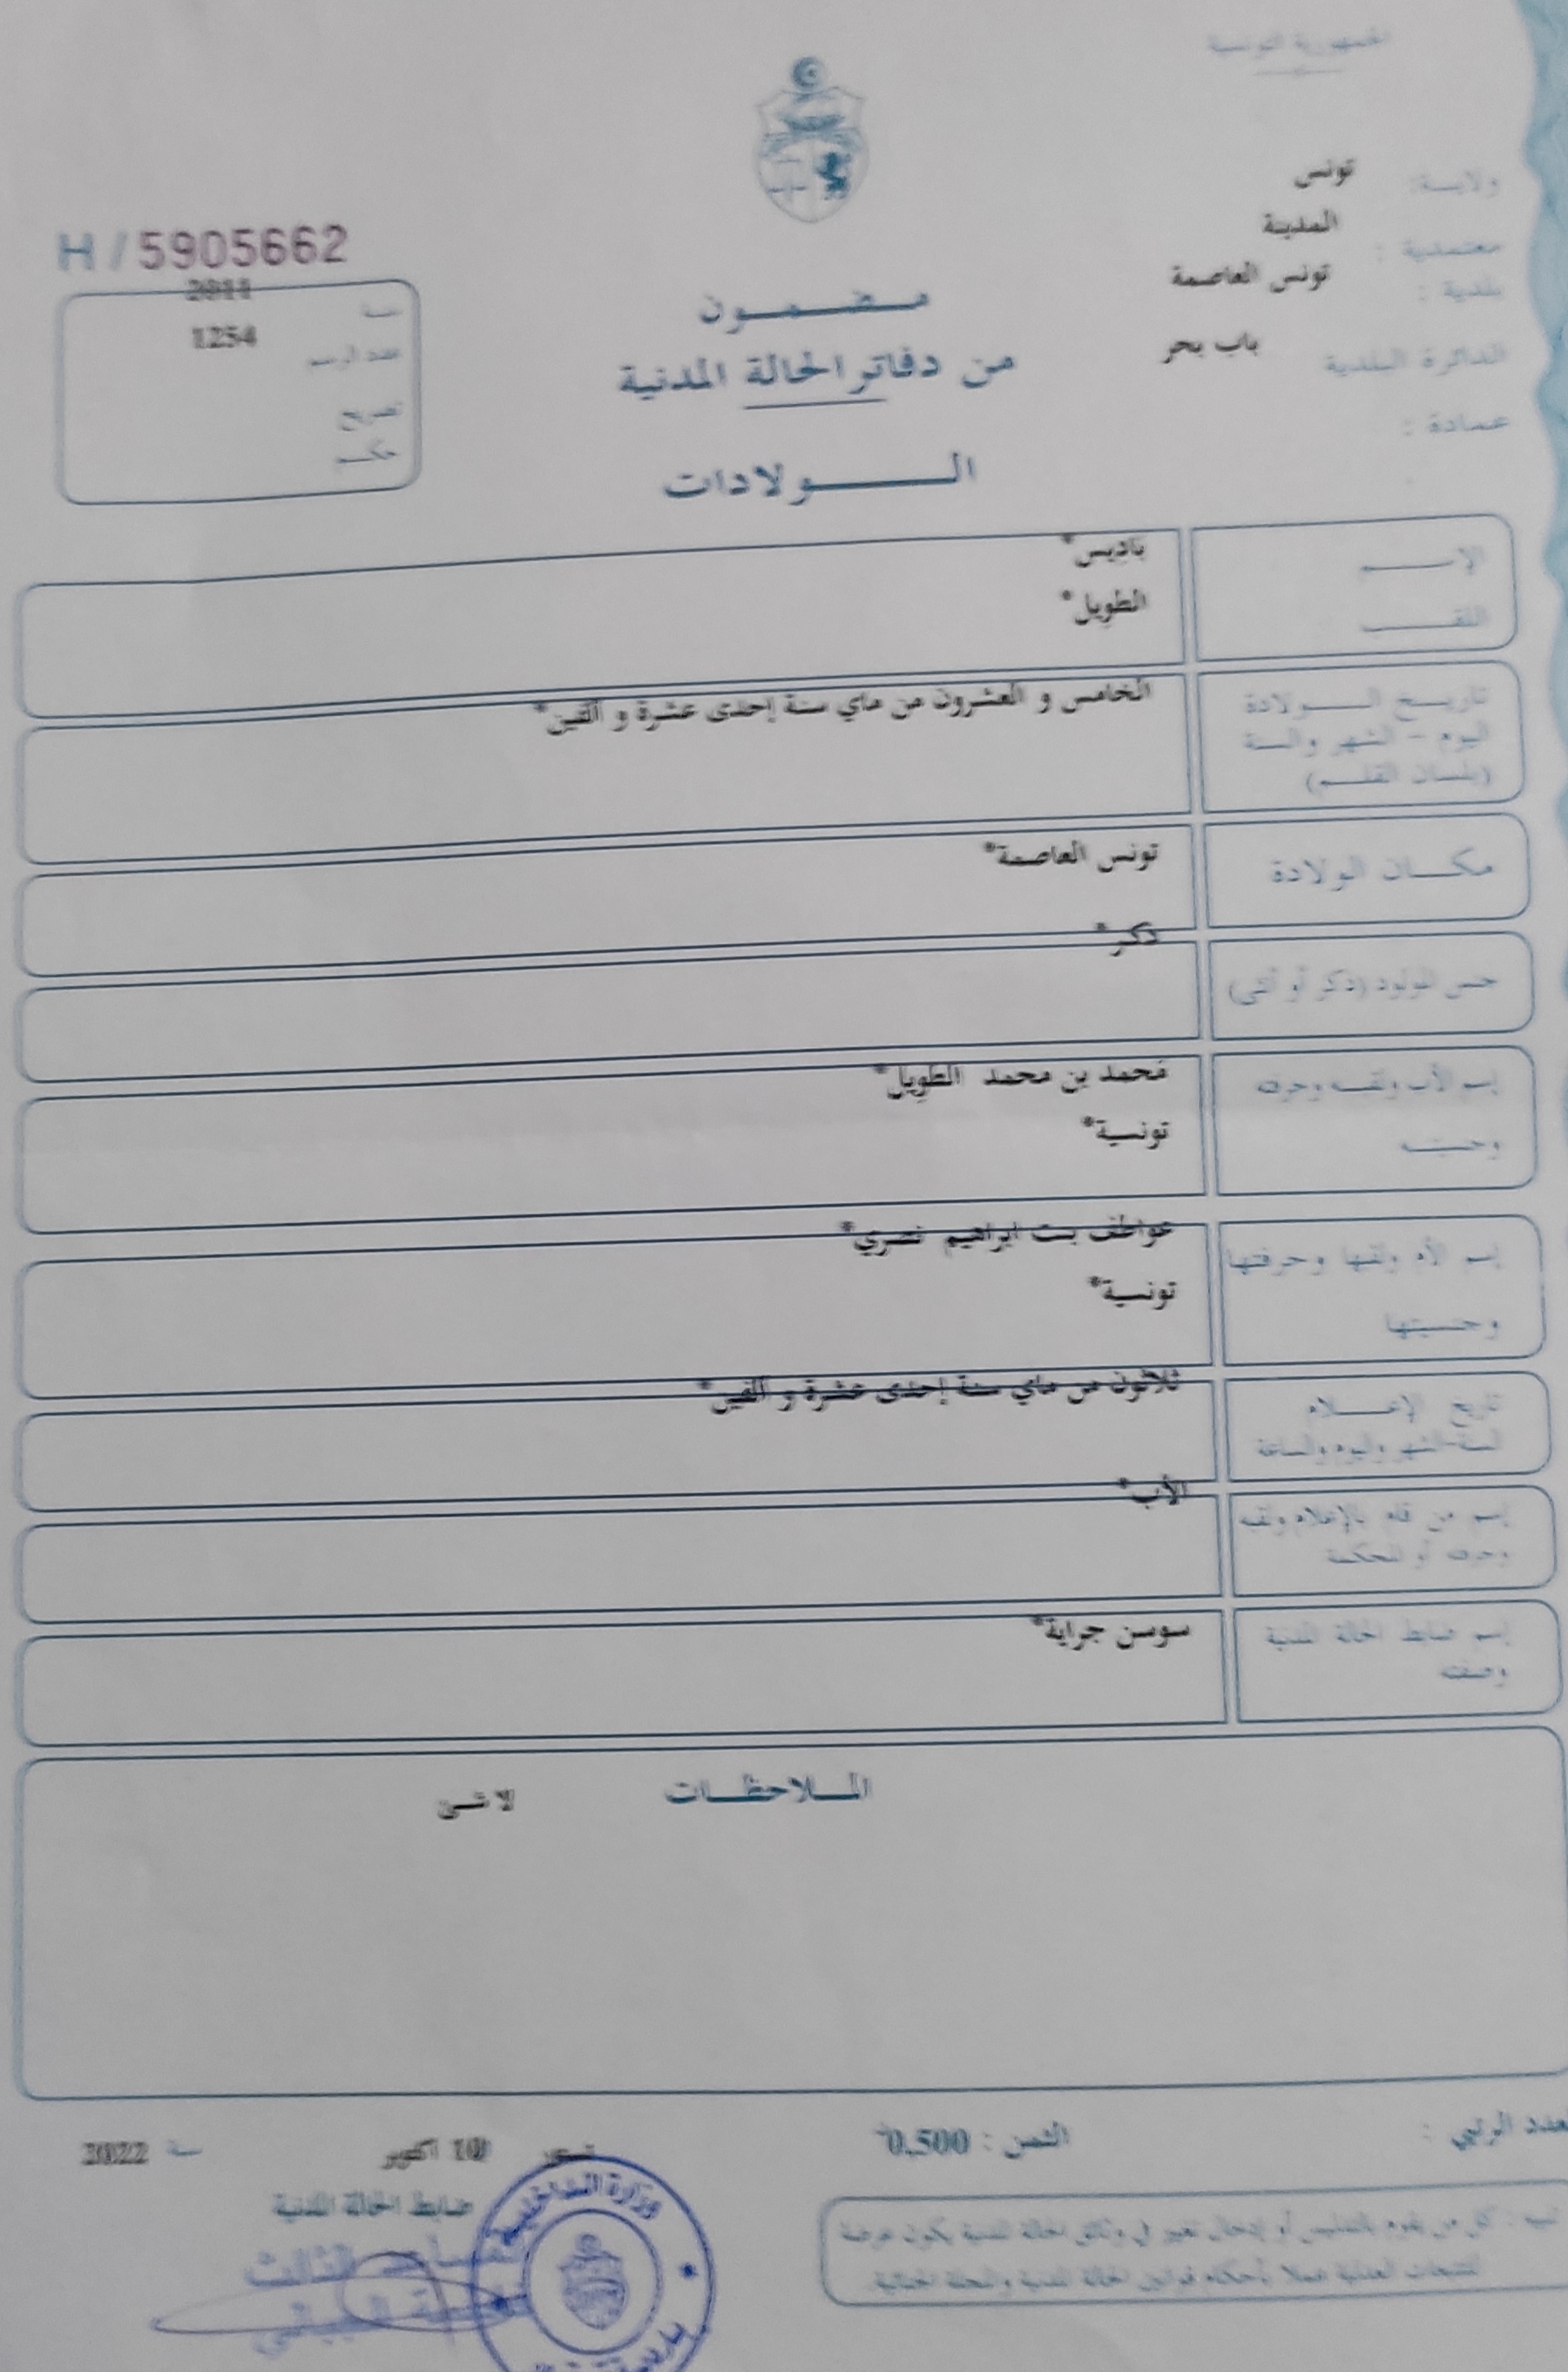 الجمهورية التونسية
ولاية: تونس
معتمدية : المدينة
بلدية : تونس العاصمة
الدائرة البلدية باب بحر
عمادة :
H / 5905662
سنة 2011
عدد الرسم 1254
تصريح
حكم
مضمون
من دفاتر الحالة المدنية
الولادات
الإسم باديس*
اللقب الطويل*
تاريخ الولادة الخامس و العشرون من ماي سنة إحدى عشرة و ألفين*
اليوم - الشهر والسنة
(بلسان القلم)
مكان الولادة تونس العاصمة*
جنس المولود (ذكر أو أنثى) ذكر*
إسم الأب ولقبه وحرفته محمد بن محمد الطويل*
وجنسيته تونسية*
إسم الأم ولقبها وحرفتها عواطف بنت ابراهيم نصري*
وجنسيتها تونسية*
تاريخ الإعلام ثلاثون من ماي سنة إحدى عشرة و ألفين*
السنة-الشهر واليوم والساعة
إسم من قام بالإعلام ولقبه الأب*
وحرفته أو المحكمة
إسم ضابط الحالة المدنية سوسن جراية*
وصفته
الملاحظات لا شئ
عدد الرتبي :
الثمن : 0,500
تونس 10 أكتوبر سنة 2022
ضابط الحالة المدنية
وزارة الداخلية
تنبيه : كل من يقوم بالتدليس أو إدخال تغيير في وثائق الحالة المدنية يكون عرضة
للتتبعات العدلية عملا بأحكام قوانين الحالة المدنية والمجلة الجنائية.